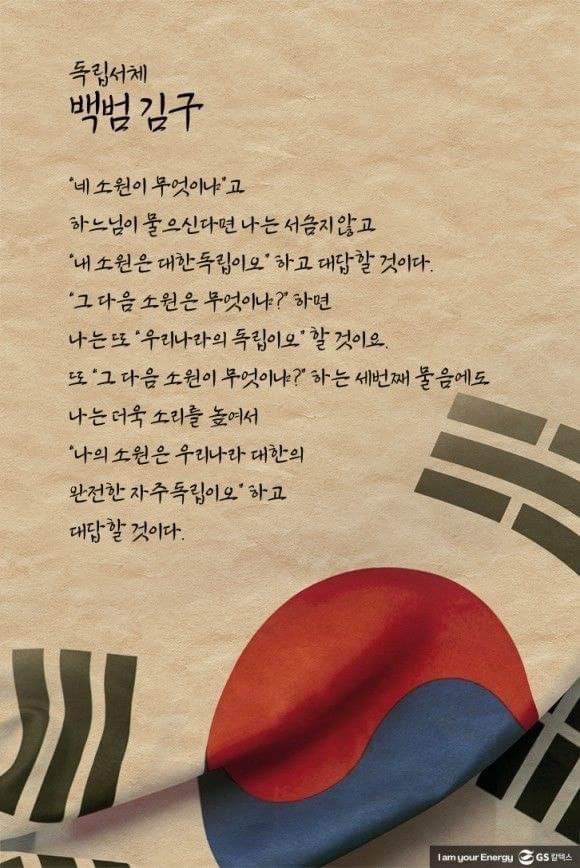 독립서체
백범 김구
"네 소원이 무엇이냐"고
하느님이 물으신다면 나는 서슴지않고
"내 소원은 대한독립이오" 하고 대답할 것이다.
"그 다음 소원은 무엇이냐?" 하면
나는 또 "우리나라의 독립이오" 할 것이요.
또 "그 다음 소원이 무엇이냐?" 하는 세번째 물음에도
나는 더욱 소리를 높여서
"나의 소원은 우리나라 대한의
완전한 자주독립이오" 하고
대답할 것이다.
I am your Energy GS칼텍스